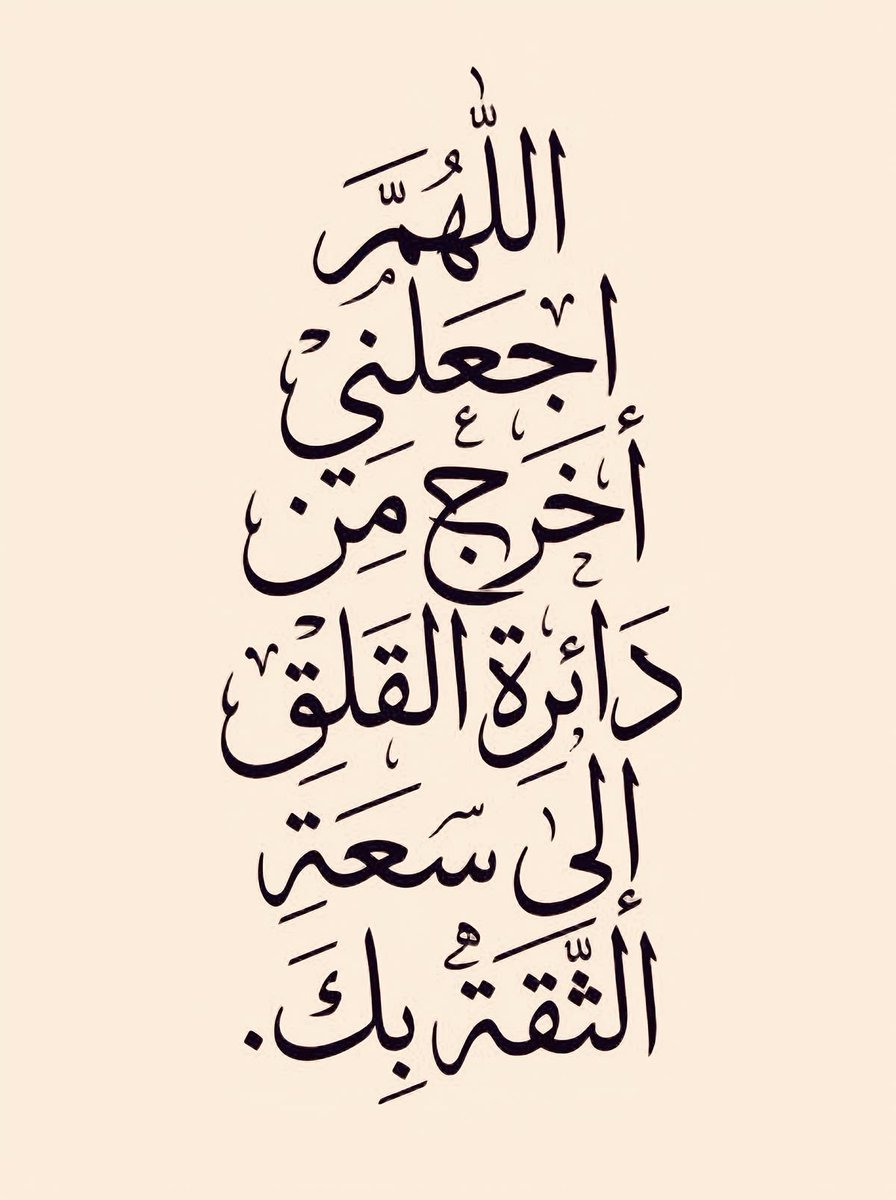 اللّٰهُمَّ
اجعَلني
أخرَج مِن
دَائرِة القَلِق
إلى سَعَةِ
الثَّقَة بِكَ.